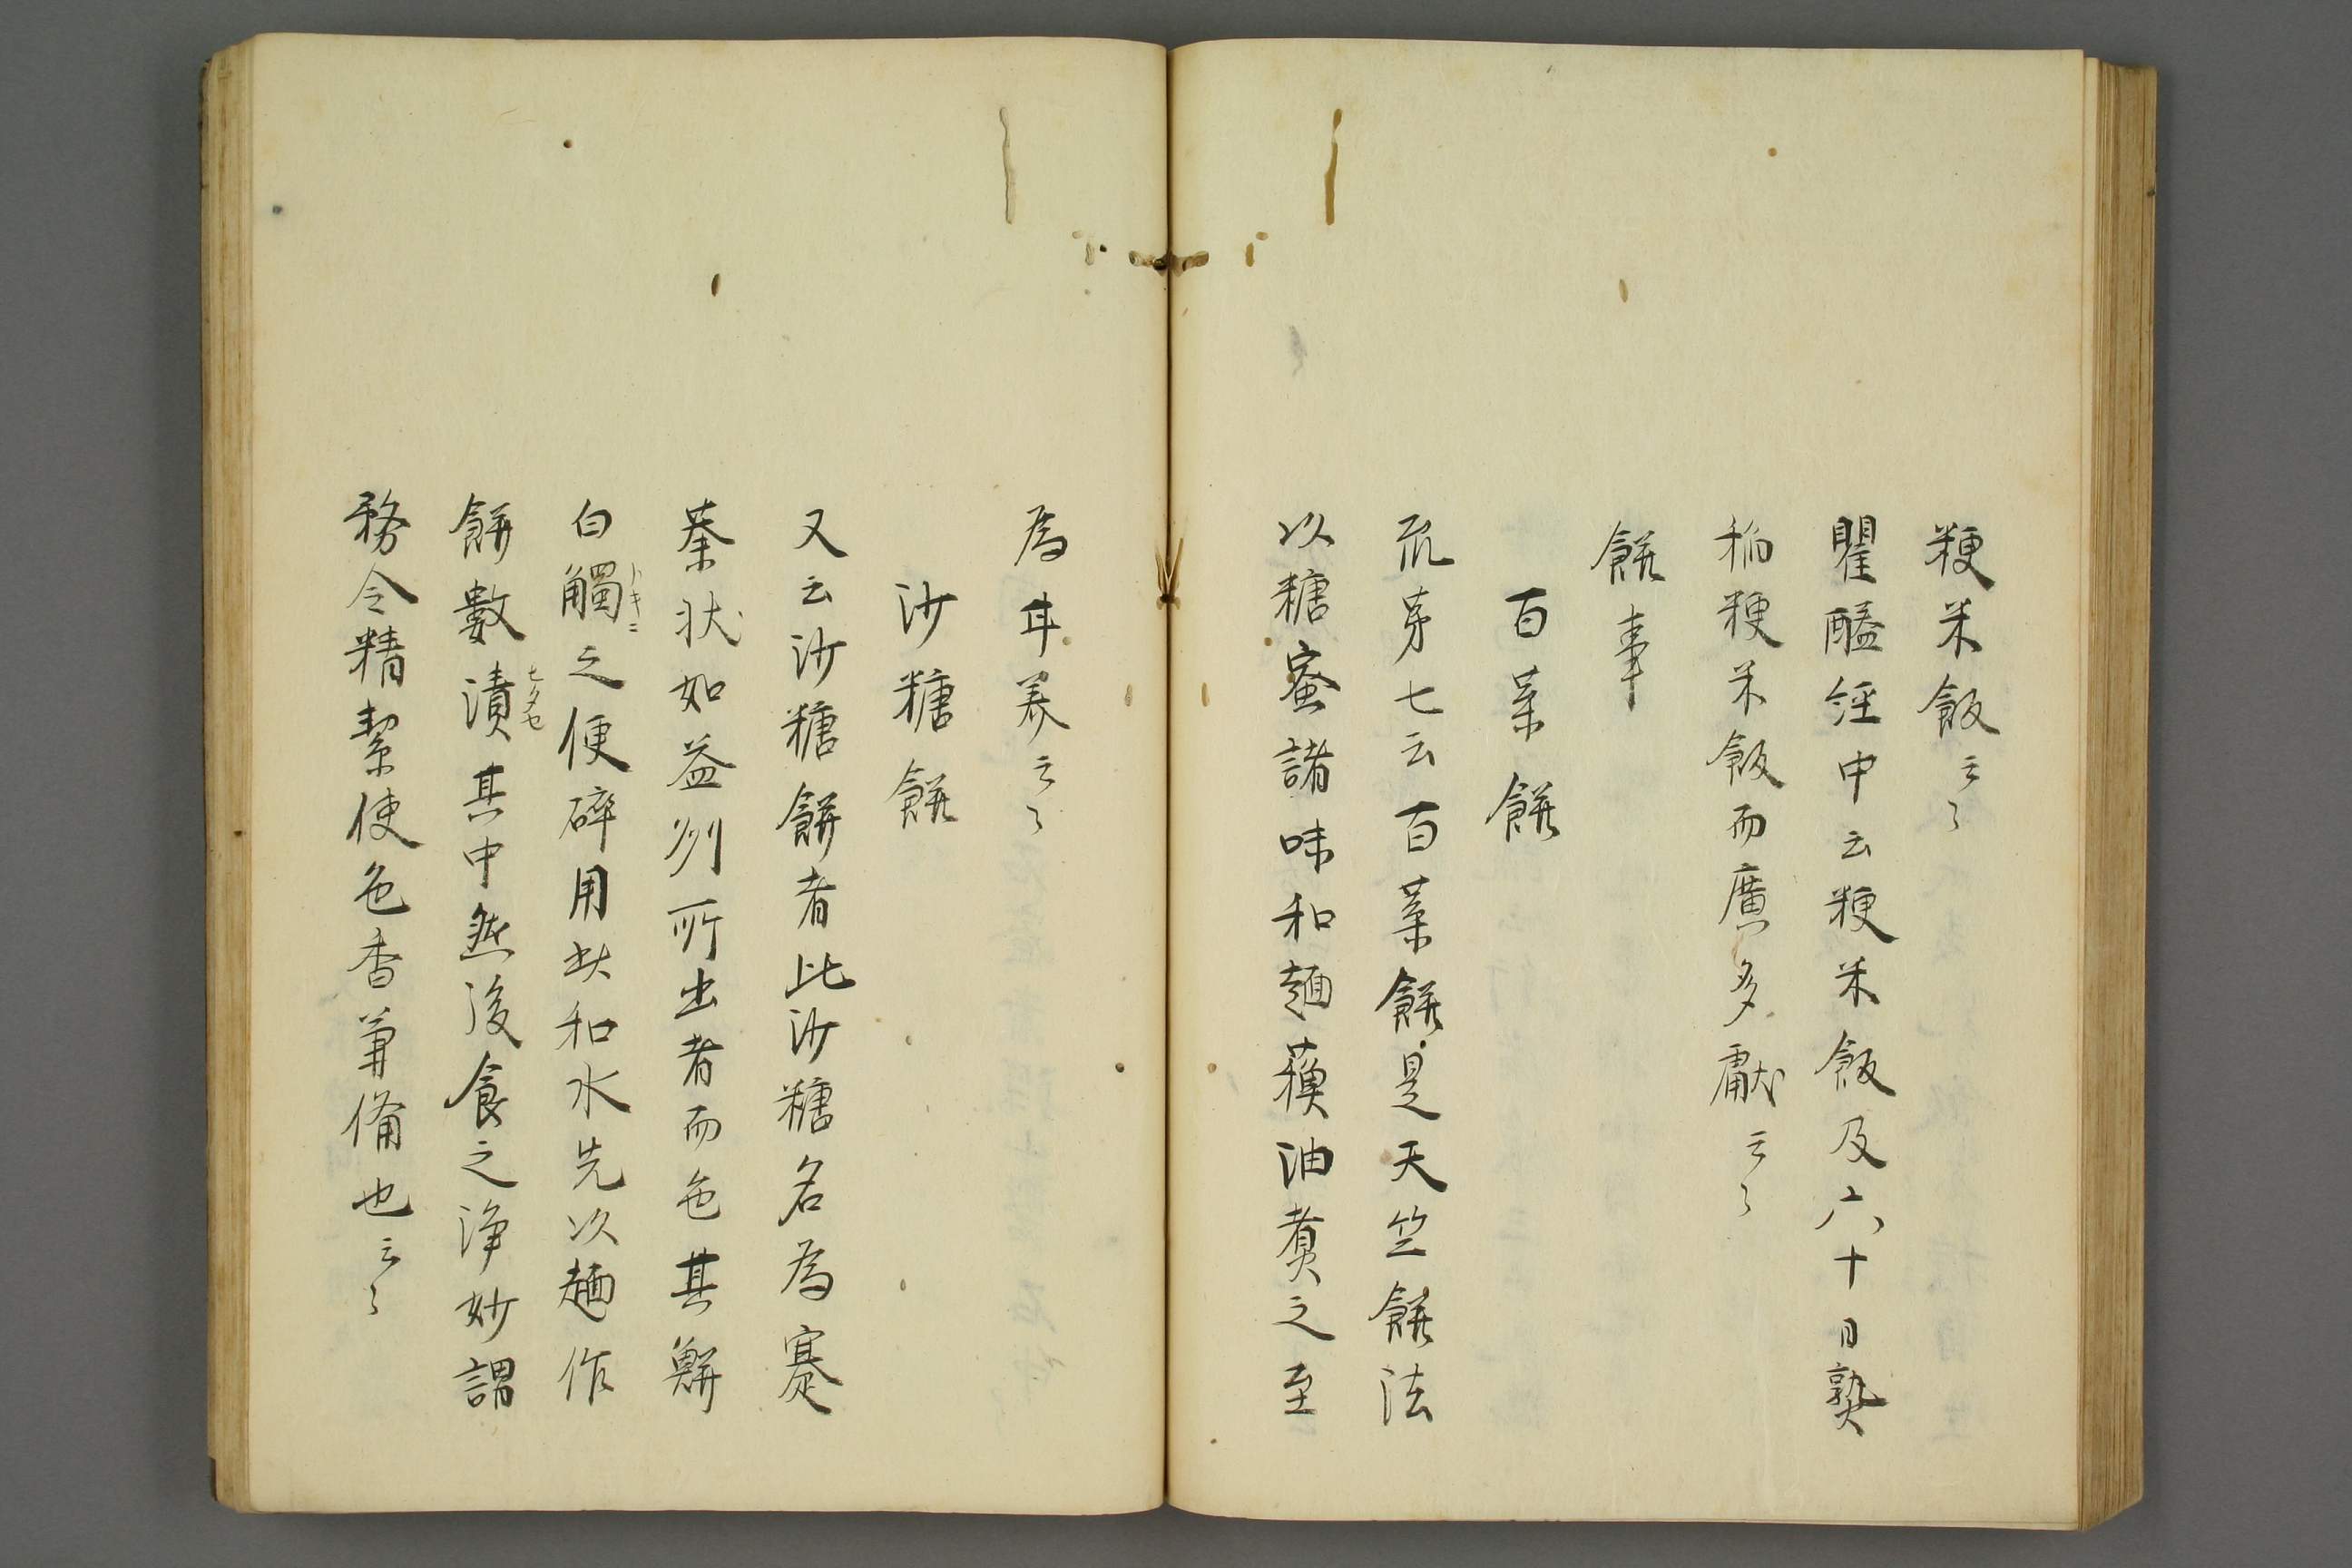 粳米飯云々
瞿醯経中云粳米飯及六十日熟
稲粳米飯而廣多獻云々
餅事
百菓餅
疏第七云百菓餅是天竺餅法
以糖蜜諸味和麺蘓油煑之至
為甘美云々
沙糖餅
又云沙糖餅者此沙糖名為蹇
荼状如益州所出者而色甚鮮
白觸之便碎用此和水先以麺作
トキニ
餅數漬其中然後食之淨妙謂
務令精潔使色香兼備也云々